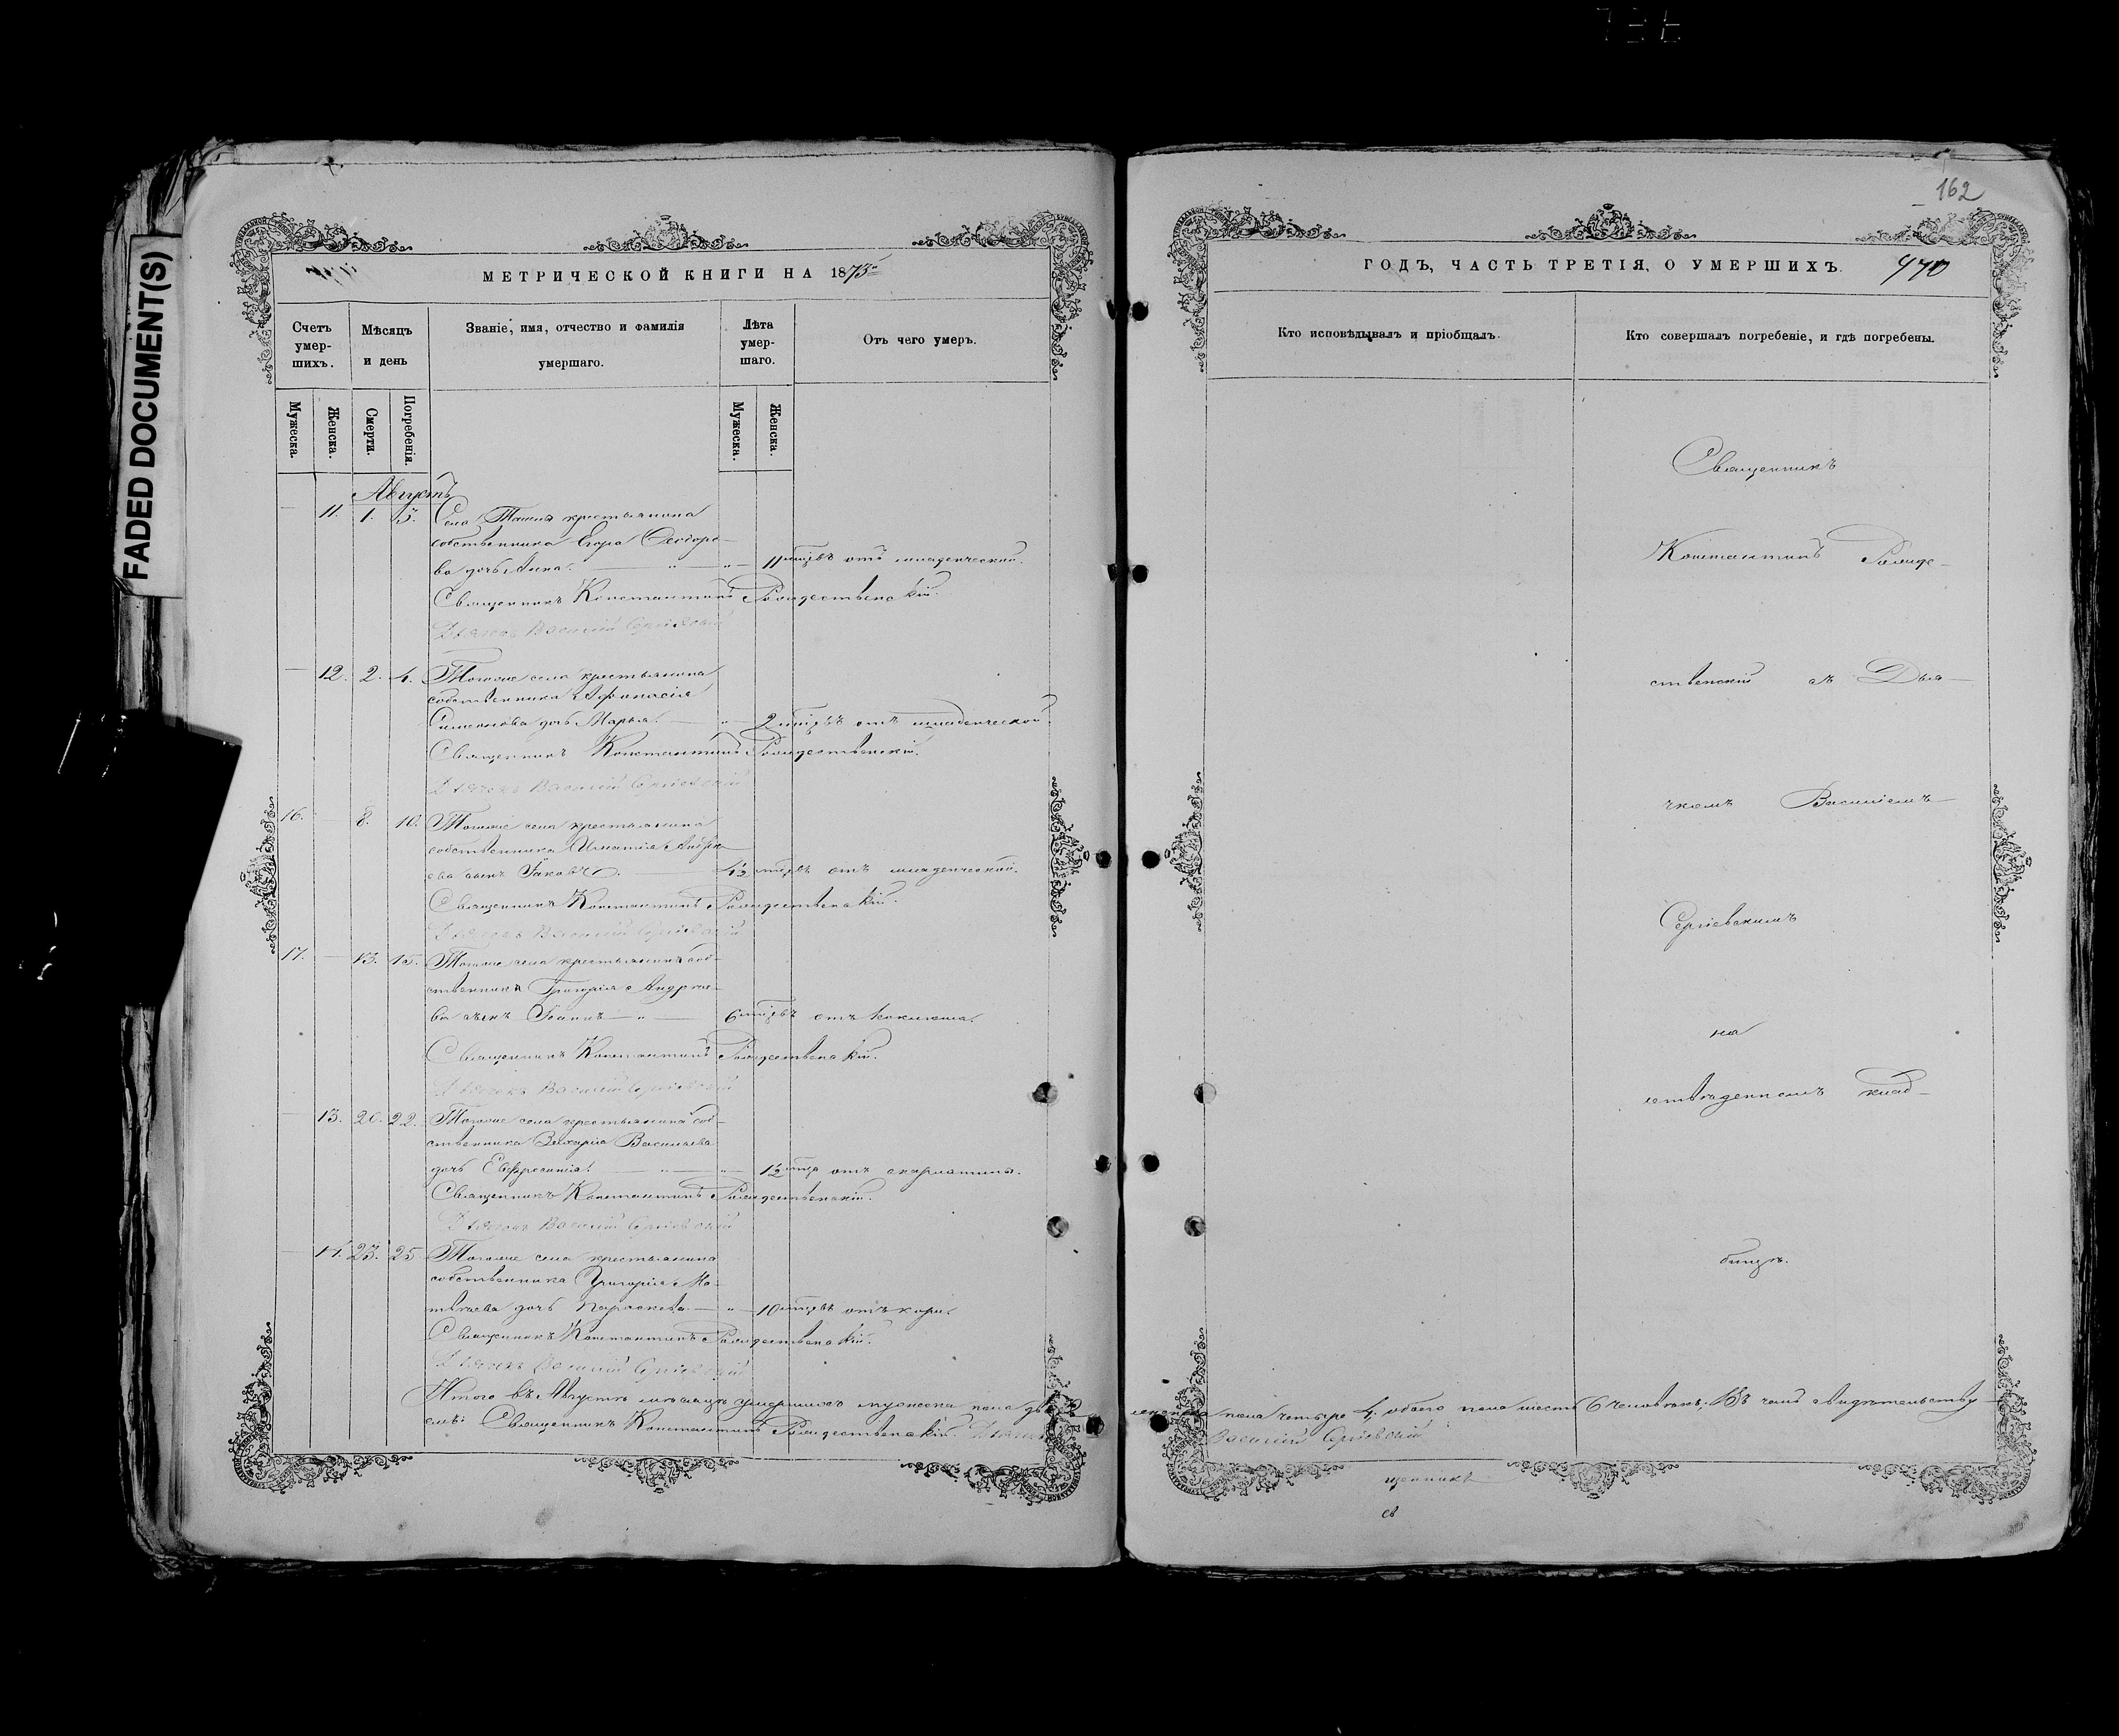 162
FADED DOCUMENT(S)
МЕТРИЧЕСКОЙ КНИГИ НА 1873
Счетъ умер-шихъ.
Мѣсяцъ и день
Званіе, имя, отчество и фамилія умершаго.
Лѣта умер-шаго.
Отъ чего умеръ.
Мужеска.
Женска.
Смерти.
Погребенія.
Мужеска.
Женска.
Августъ
11. 1. 3. Села крестьянина
собственника Егора Ѳеодоро-
ва дочь Анна. 11 мцвъ отъ младенческой.
Священникъ Константинъ Рождественскій.
Дьячекъ Василій Сергіевскій
12. 2. 4. Тогоже села крестьянина
собственника Афанасія
Симеонова дочь Марья. 2 мцвъ отъ младенческой.
Священникъ Константинъ Рождественскій.
Дьячекъ Василій Сергіевскій
16. 8. 10. Тогоже села крестьянина
собственника Игнатія Андре-
ева сынъ Іаковъ. мцвъ отъ младенческой.
Священникъ Константинъ Рождественскій.
Дьячекъ Василій Сергіевскій
17. 13. 15. Тогоже села крестьянина соб-
ственника Григорія Андрее-
ва сынъ Іоаннъ 6 мцвъ отъ коклюша.
Священникъ Константинъ Рождественскій.
Дьячекъ Василій Сергіевскій
13. 20. 22. Тогоже села крестьянина соб-
ственника Захарія Васильева
дочь Евфросинія. 1½ отъ скарлатины.
Священникъ Константинъ Рождественскій.
Дьячекъ Василій Сергіевскій
14. 23. 25 Тогоже села крестьянина
собственника Григорія Ма-
твѣева дочь Параскева. 10 мцвъ отъ кори.
Священникъ Константинъ Рождественскій.
Дьячекъ Василій Сергіевскій
Итого въ Августѣ мѣсяцѣ умершихъ мужеска пола два 2
емъ: Священникъ Константинъ Рождественскій. Дьячекъ
ГОДЪ, ЧАСТЬ ТРЕТІЯ, О УМЕРШИХЪ. 470
Кто исповѣдывалъ и пріобщалъ.
Кто совершалъ погребеніе, и гдѣ погребены.
Священникъ
Константинъ Рожде-
ственскій съ Дья-
чкомъ Василіемъ
Сергіевскимъ
на
клад-
бищѣ.
женска пола четыре 4. обоего пола шесть 6 человѣкъ; Въ чемъ свидѣтельству-
Василій Сергіевскій
щенникъ
св